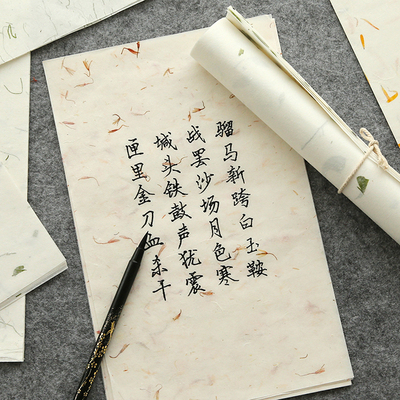 骝马新跨白玉鞍
战罢沙场月色寒
城头铁鼓声犹震
匣里金刀血未干